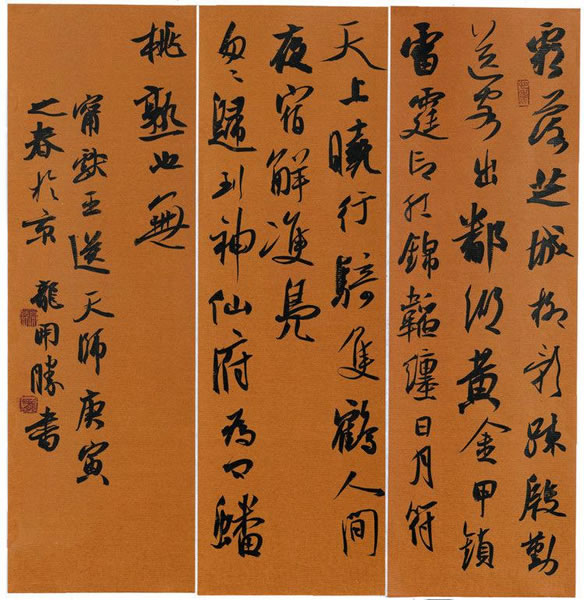 霜落芝城柳影疎殷勤
送客出鄱湖黃金甲鎖
雷霆印紅錦韜纏日月符
天上曉行騎隻鶴人間
夜宿解雙鳧
匆匆歸到神仙府為問蟠
桃熟也無
甯獻王送天師庚寅
之春於京 龍開勝書